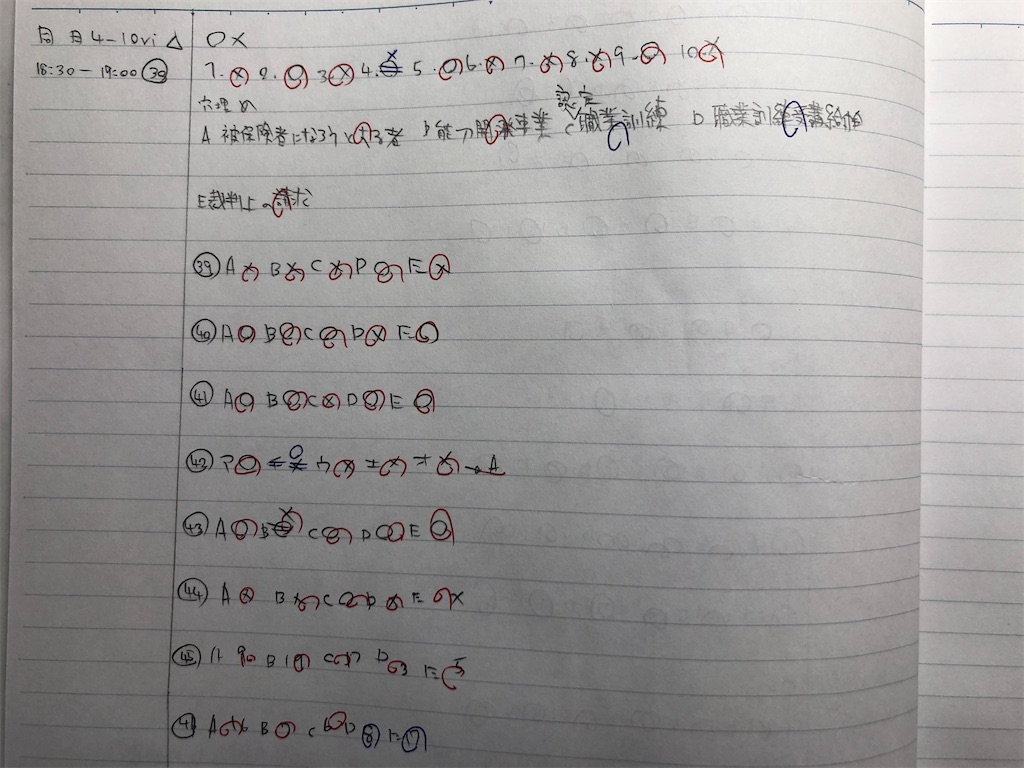 4-10vi △ ○×
18:30-19:00 ㉚
1.× 2.○ 3.× 4. 5.○ 6.× 7.× 8.× 9.○ 10.×
穴埋め
認定
A 被保険者になろうとする者 b能力開発事業 C 職業訓練 D 職業訓練受講給付
E裁判上の請求
㊴ A× B× C× D○ E×
㊵ A○ B○ C○ D× E○
㊶ A○ B○ C× D○ E○
㊷ ア○ イ ウ× エ× オ× → A
㊸ A○ B C○ D○ E○
㊹ A× B× C○ D× E×
㊺
A× B○ C